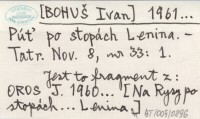 [BOHUŠ Ivan] 1961...
Púť po stopách Lenina. -
Tatr. Nov. 8, nr 33: 1.
Jest to fragment z:
OROS J. 1960... [Na Rysy po
stopách... Lenina.]